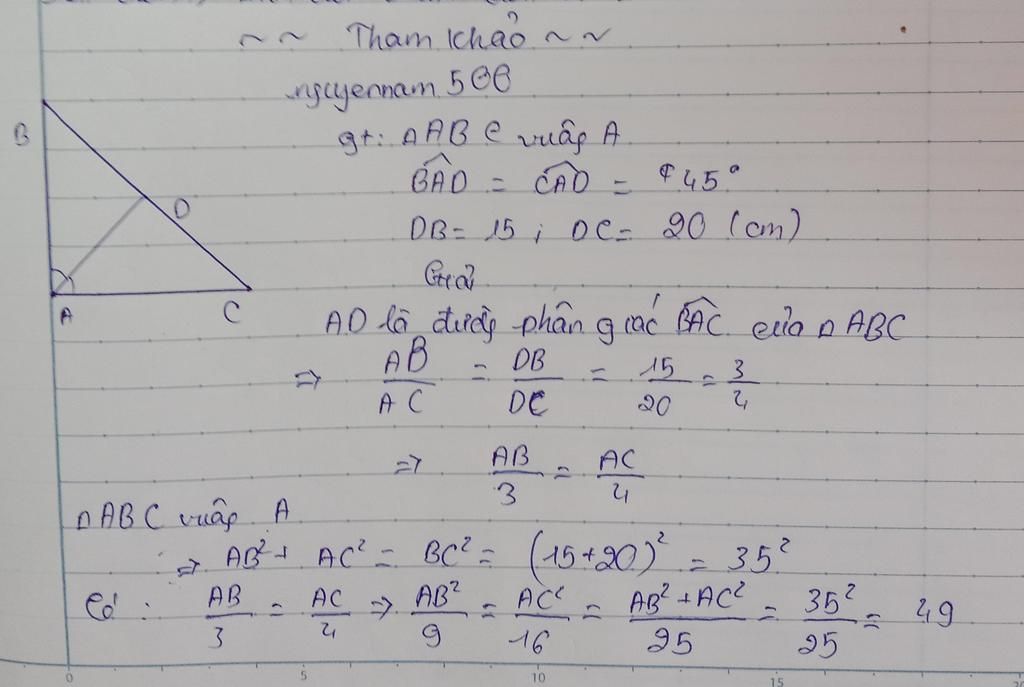 ~ ~ Tham khảo ~ ~
nguyennam 500
B
gt: △ABC vuông A
BAD = CAD = 45°
D
DB = 15 ; DC = 20 (cm)
Giải
A C
AD là đường phân giác BAC của △ABC
=> AB/AC = DB/DC = 15/20 = 3/4
=> AB/3 = AC/4
△ABC vuông A
=> AB² + AC² = BC² = (15+20)² = 35²
Có : AB/3 = AC/4 => AB²/9 = AC²/16 = AB²+AC²/25 = 35²/25 = 49
0 5 10 15 20